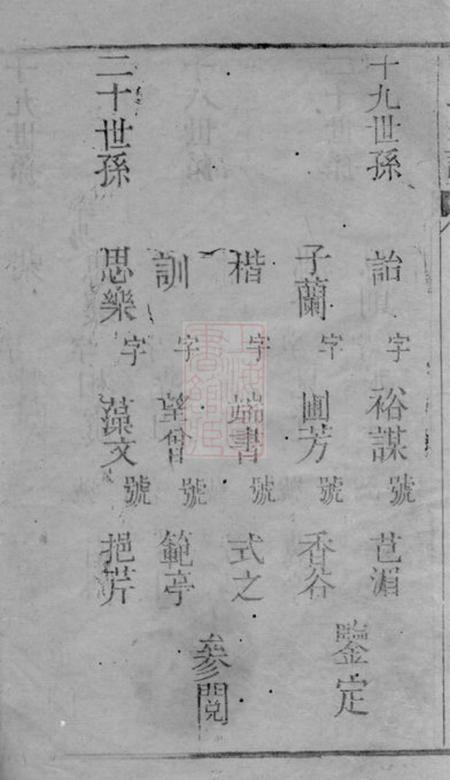 十九世孫 詒 字 裕謀 號 芑湄
子蘭 字 圃芳 號 香谷
鑒定
楷 字 端書 號 式之
訓 字 望曾 號 範亭
參閱
二十世孫 思樂 字 藻文 號 挹芹